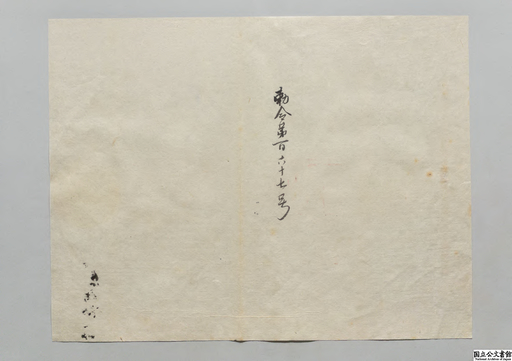 勅令第百六十七号
国立公文書館
National Archives of Japan